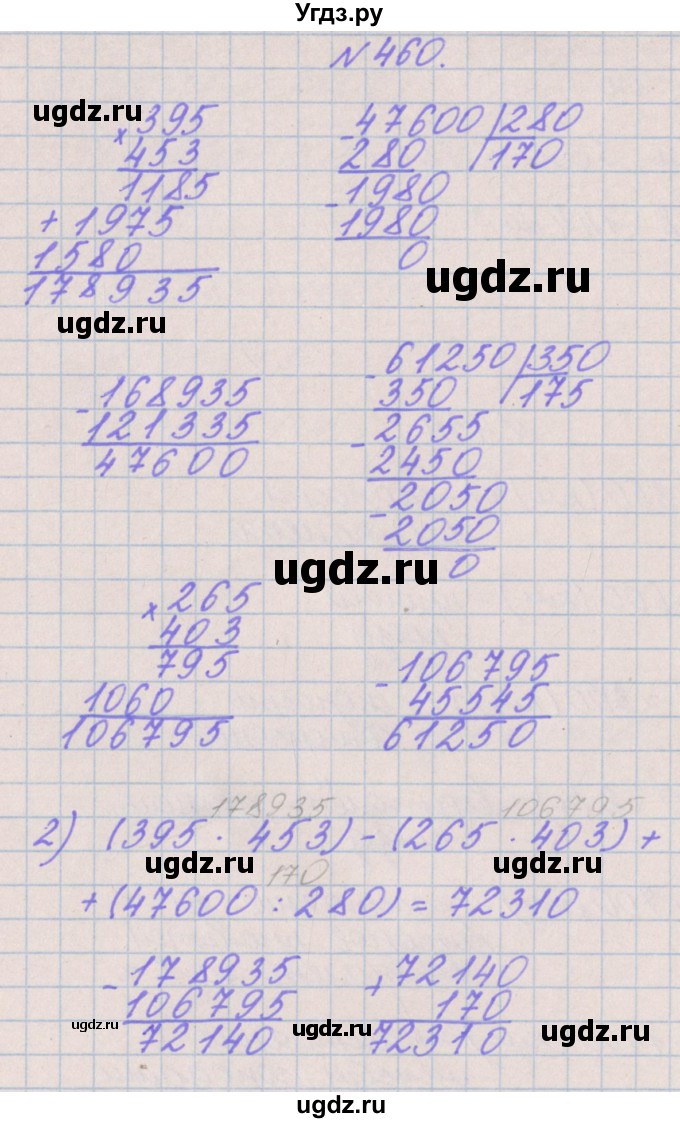 Угдз.ру
N 460.
ugdz.ru
× 395
453
1185
+ 1975
1580
178935
- 47600 | 280
280 | 170
- 1980
1980
0
ugdz.ru
ugdz.ru
- 168935
121335
47600
- 61250 | 350
350 | 175
- 2655
2450
- 2050
2050
0
ugdz.ru
× 265
403
795
1060
106795
- 106795
45545
61250
178935 106795
2) (395 · 453) - (265 · 403) +
ugdz.ru ugdz.ru
170
+ (47600 : 280) = 72310
- 178935
106795
72140
+ 72140
170
72310
ugdz.ru ugdz.ru ugdz.ru
ugdz.ru